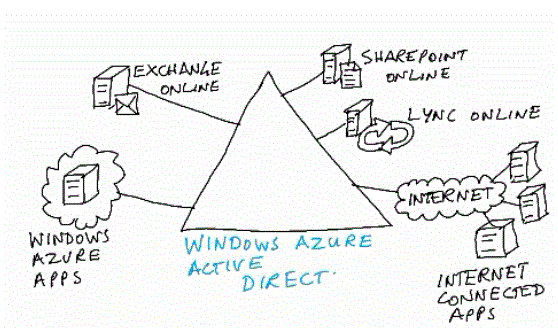 EXCHANGE
ONLINE
SHAREPOINT
ONLINE
LYNC ONLINE
INTERNET
WINDOWS
AZURE
APPS
WINDOWS AZURE
ACTIVE
DIRECT.
INTERNET
CONNECTED
APPS